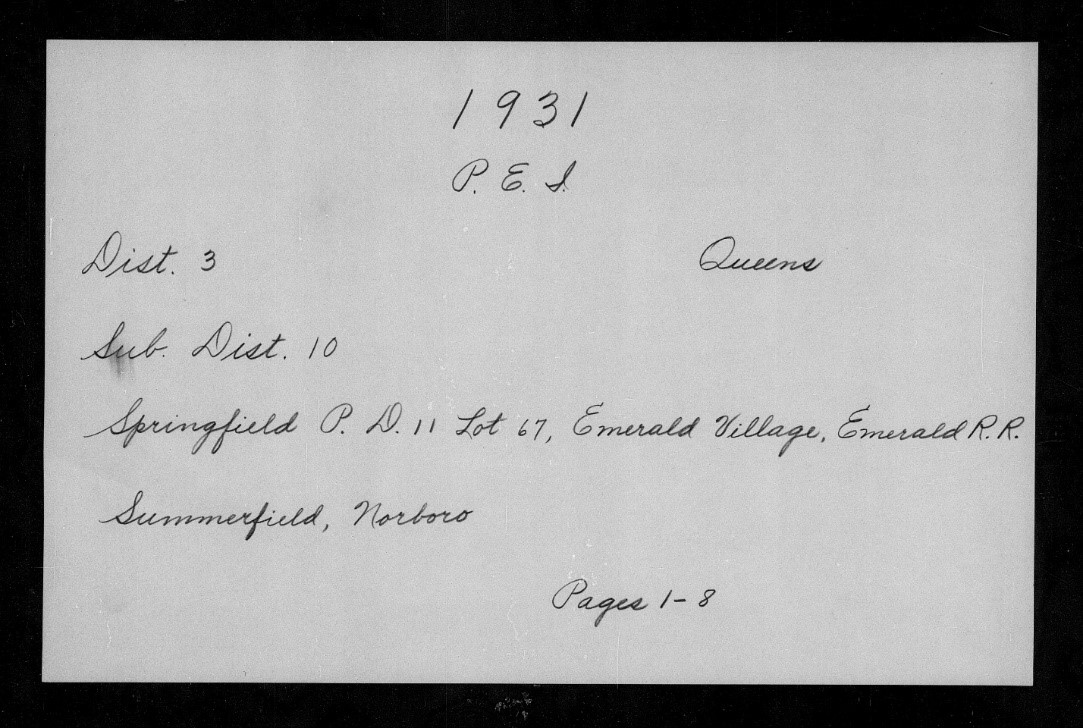 1931
P. E. I.
Dist. 3 Queens
Sub. Dist. 10
Springfield P. D. 11 Lot 67, Emerald Village, Emerald R. R.
Summerfield, Norboro
Pages 1-8